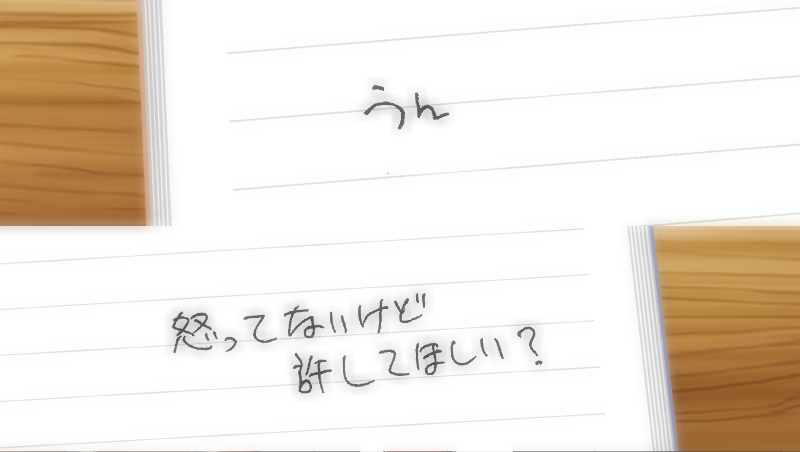 うん
怒ってないけど
許してほしい?